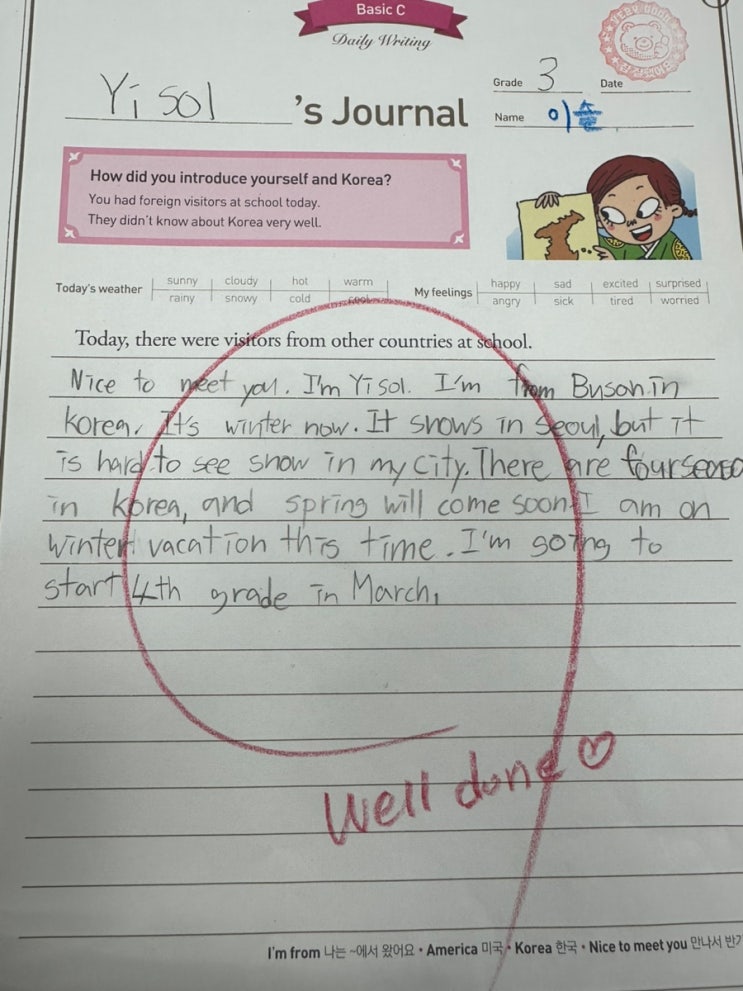 Basic C
Daily Writing
Yisol 's Journal
Grade 3 Date
Name 이솔
How did you introduce yourself and Korea?
You had foreign visitors at school today.
They didn't know about Korea very well.
Today's weather sunny cloudy hot warm
rainy snowy cold cool
My feelings happy sad excited surprised
angry sick tired worried
Today, there were visitors from other countries at school.
Nice to meet you. I'm Yisol. I'm from Busan in
korea. It's winter now. It snows in seoul, but it
is hard to see snow in my city. There are four
in korea, and spring will come soon. I am on
winter vacation this time. I'm going to
start 4th grade in March.
Well done ♡
I'm from 나는 ~에서 왔어요 • America 미국 • Korea 한국 • Nice to meet you 만나서 반가